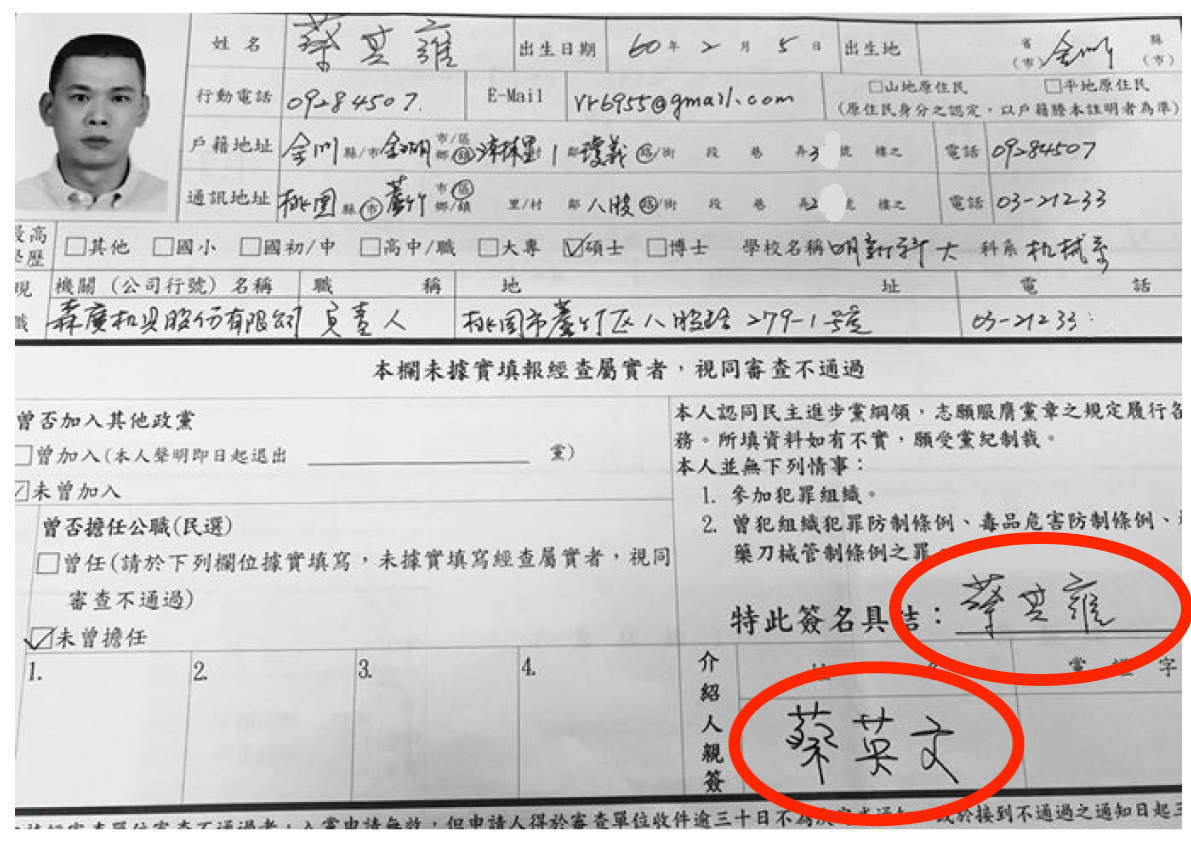 姓名 蔡其雍 出生日期 60年 2月 5日 出生地 省(市) 金門 縣(市)
行動電話 09284507. E-Mail vr6955@gmail.com □山地原住民 □平地原住民
(原住民身分之認定,以戶籍謄本註明者為準)
戶籍地址 金門縣/市金湖市/區鄉/鎮 里村 1鄰瓊義路/街 段 巷 弄3 號 樓之 電話 09284507
通訊地址 桃園縣市蘆竹市/區鄉/鎮 里/村 鄰八股路/街 段 巷 弄2 號 樓之 電話 03-21233
最高學歷 □其他 □國小 □國初/中 □高中/職 □大專 ☑碩士 □博士 學校名稱 明新科大 科系 机械系
現職 機關(公司行號)名稱 職稱 地址 電話
森廣机具股份有限公司 負責人 桃園市蘆竹区八股路279-1號 03-21233
本欄未據實填報經查屬實者,視同審查不通過
曾否加入其他政黨
□曾加入(本人聲明即日起退出 黨)
☑未曾加入
曾否擔任公職(民選)
□曾任(請於下列欄位據實填寫,未據實填寫經查屬實者,視同
審查不通過)
☑未曾擔任
1. 2. 3. 4.
本人認同民主進步黨綱領,志願服膺黨章之規定履行各
務。所填資料如有不實,願受黨紀制裁。
本人並無下列情事:
1. 參加犯罪組織。
2. 曾犯組織犯罪防制條例、毒品危害防制條例、
藥刀械管制條例之罪
特此簽名具結: 蔡其雍
介紹人親簽 姓名 黨證字
蔡英文
審查單位審查不通過者,入黨申請無效,但申請人得於審查單位收件逾三十日不為 或於接到不通過之通知日起三